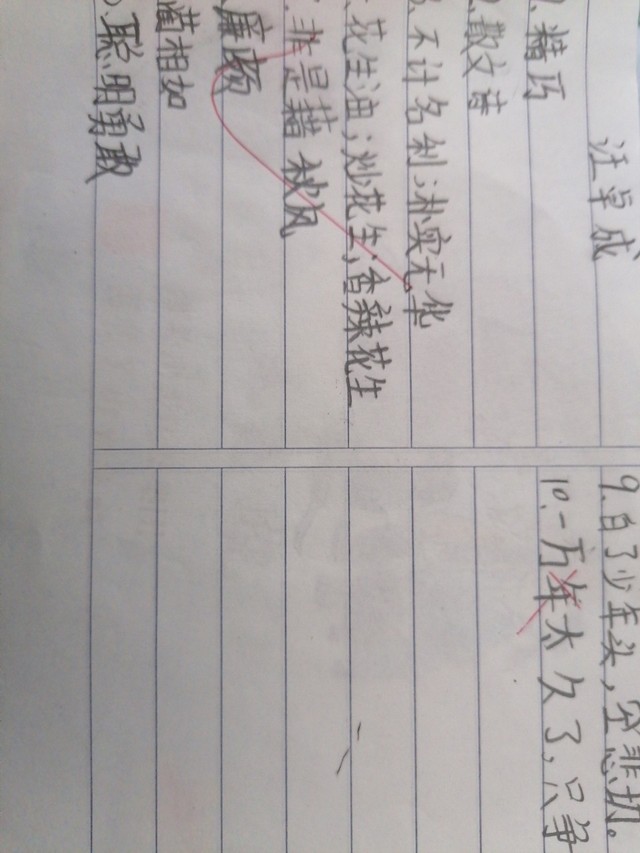 汪卓成
精巧
散文诗
不计名利;朴实无华
花生油;炒花生;香辣花生
非是藉秋风
廉颇
蔺相如
聪明勇敢
9.白了少年头,空悲切。
10.一万年太久了,只争